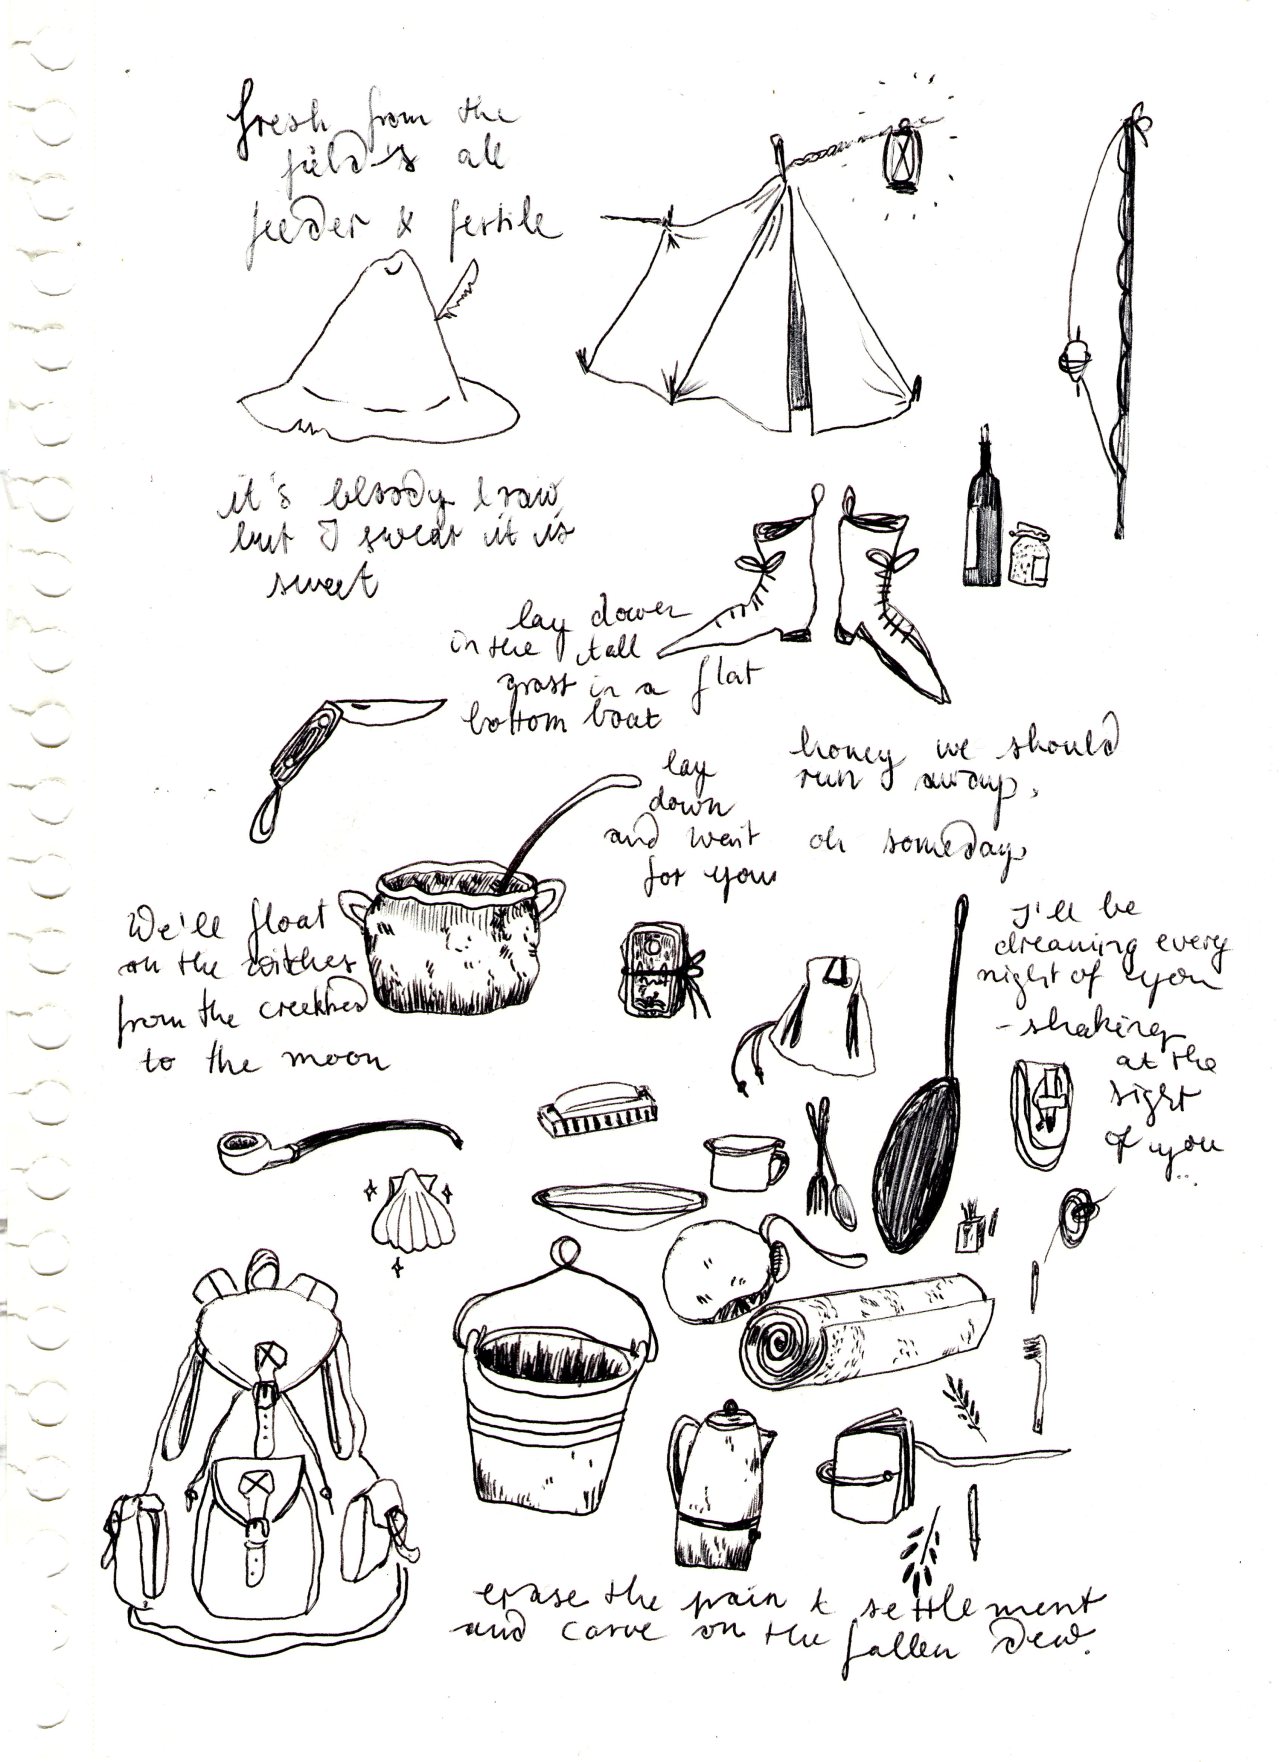 fresh from the
field's all
feeder & fertile
it's bloody & raw
but I swear it is
sweet
lay down
in the tall
grass in a flat
bottom boat
lay
down
and wait
for you
honey we should
run away,
oh someday
We'll float
on the
from the creekbed
to the moon
I'll be
dreaming every
night of you
- shaking
at the
sight
of you
...
erase the pain & settlement
and carve on the fallen dew.